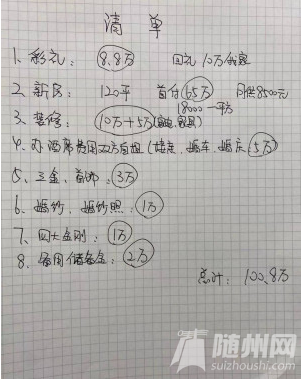 清单
1、彩礼: 8.8万 回礼 10万
2、新房: 120平 首付 65万 月供8500元
18000一平方
3、装修: 10万+5万(家电、家具)
4、办酒席费用双方自担(接亲、婚车、婚庆 5万)
5、三金、首饰: 3万
6、婚纱、婚纱照: 1万
7、四大金刚: 1万
8、备用储备金: 2万
总计: 100.8万
随州网
suizhoushi.com